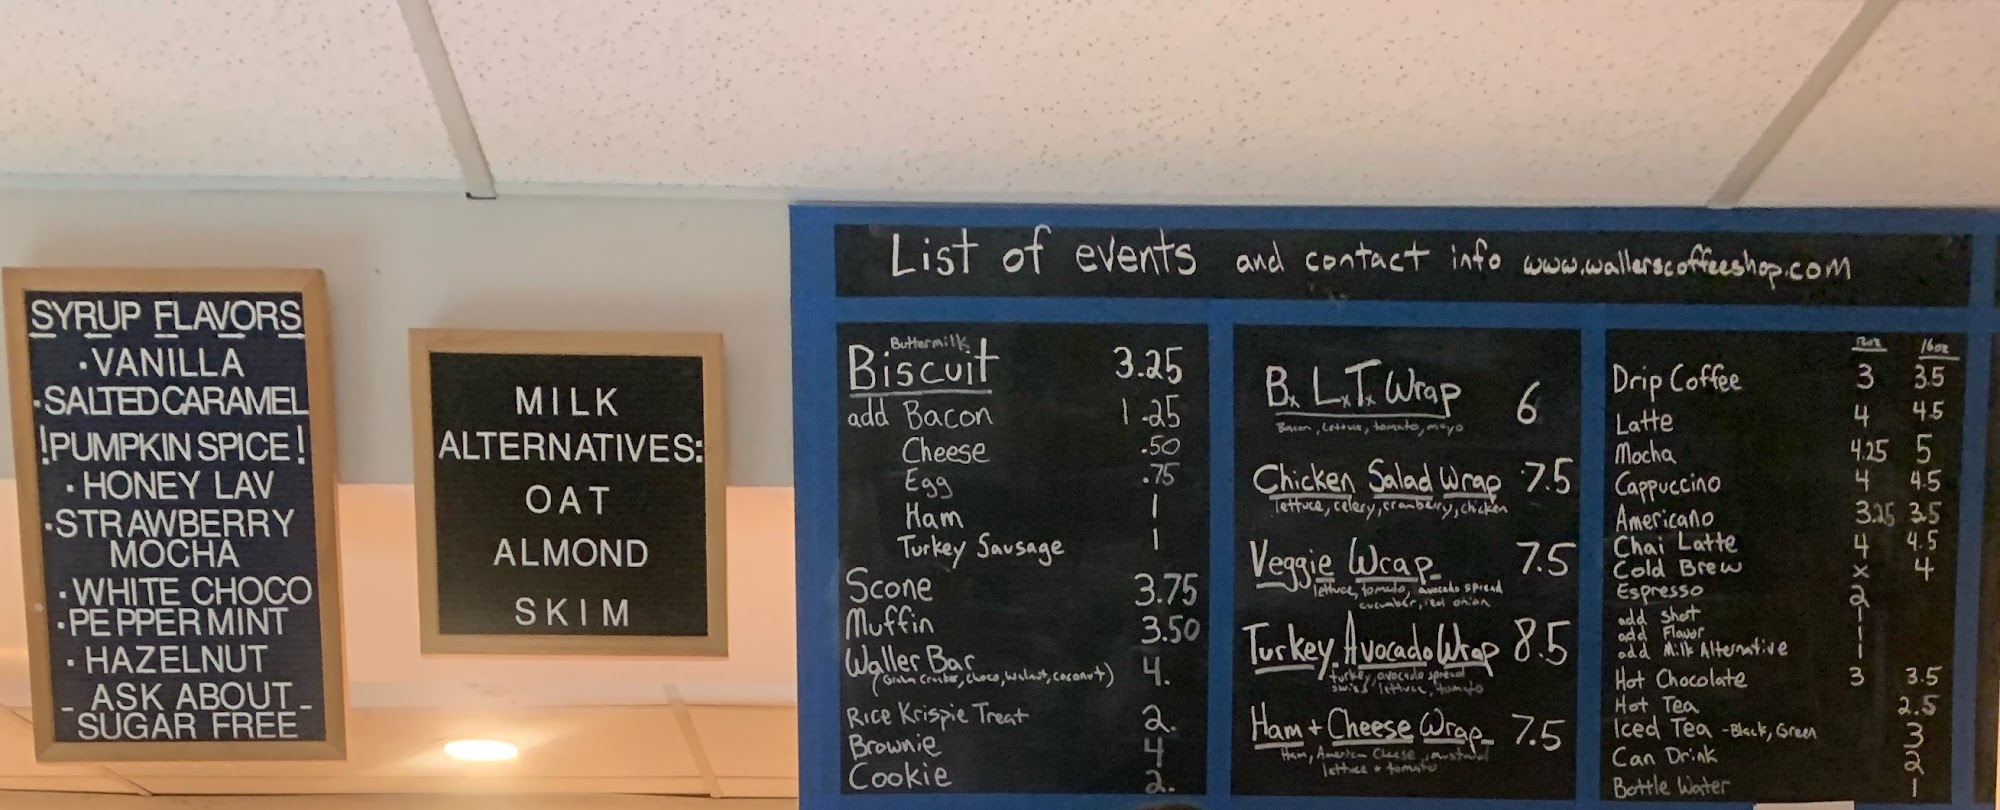 SYRUP FLAVORS
· VANILLA
· SALTED CARAMEL
! PUMPKIN SPICE !
· HONEY LAV
· STRAWBERRY
MOCHA
· WHITE CHOCO
· PEPPERMINT
· HAZELNUT
- ASK ABOUT -
SUGAR FREE
MILK
ALTERNATIVES:
OAT
ALMOND
SKIM
List of events and contact info www.wallerscoffeeshop.com
Buttermilk
Biscuit 3.25
add Bacon 1.25
Cheese .50
Egg .75
Ham 1
Turkey Sausage 1
Scone 3.75
Muffin 3.50
Waller Bar 4.
(Graham Cracker, choco, walnut, coconut)
Rice Krispie Treat 2.
Brownie 4
Cookie 2.
B.L.T. Wrap 6
Bacon, lettuce, tomato, mayo
Chicken Salad Wrap 7.5
lettuce, celery, cranberry, chicken
Veggie Wrap 7.5
lettuce, tomato, avocado spread
cucumber, red onion
Turkey Avocado Wrap 8.5
turkey, avocado spread
swiss lettuce, tomato
Ham + Cheese Wrap 7.5
Ham, American Cheese, mustard
lettuce + tomato
12oz 16oz
Drip Coffee 3 3.5
Latte 4 4.5
Mocha 4.25 5
Cappuccino 4 4.5
Americano 3.25 3.5
Chai Latte 4 4.5
Cold Brew x 4
Espresso 2
add shot 1
add Flavor 1
add Milk Alternative 1
Hot Chocolate 3 3.5
Hot Tea 2.5
Iced Tea - Black, Green 3
Can Drink 2
Bottle Water 1